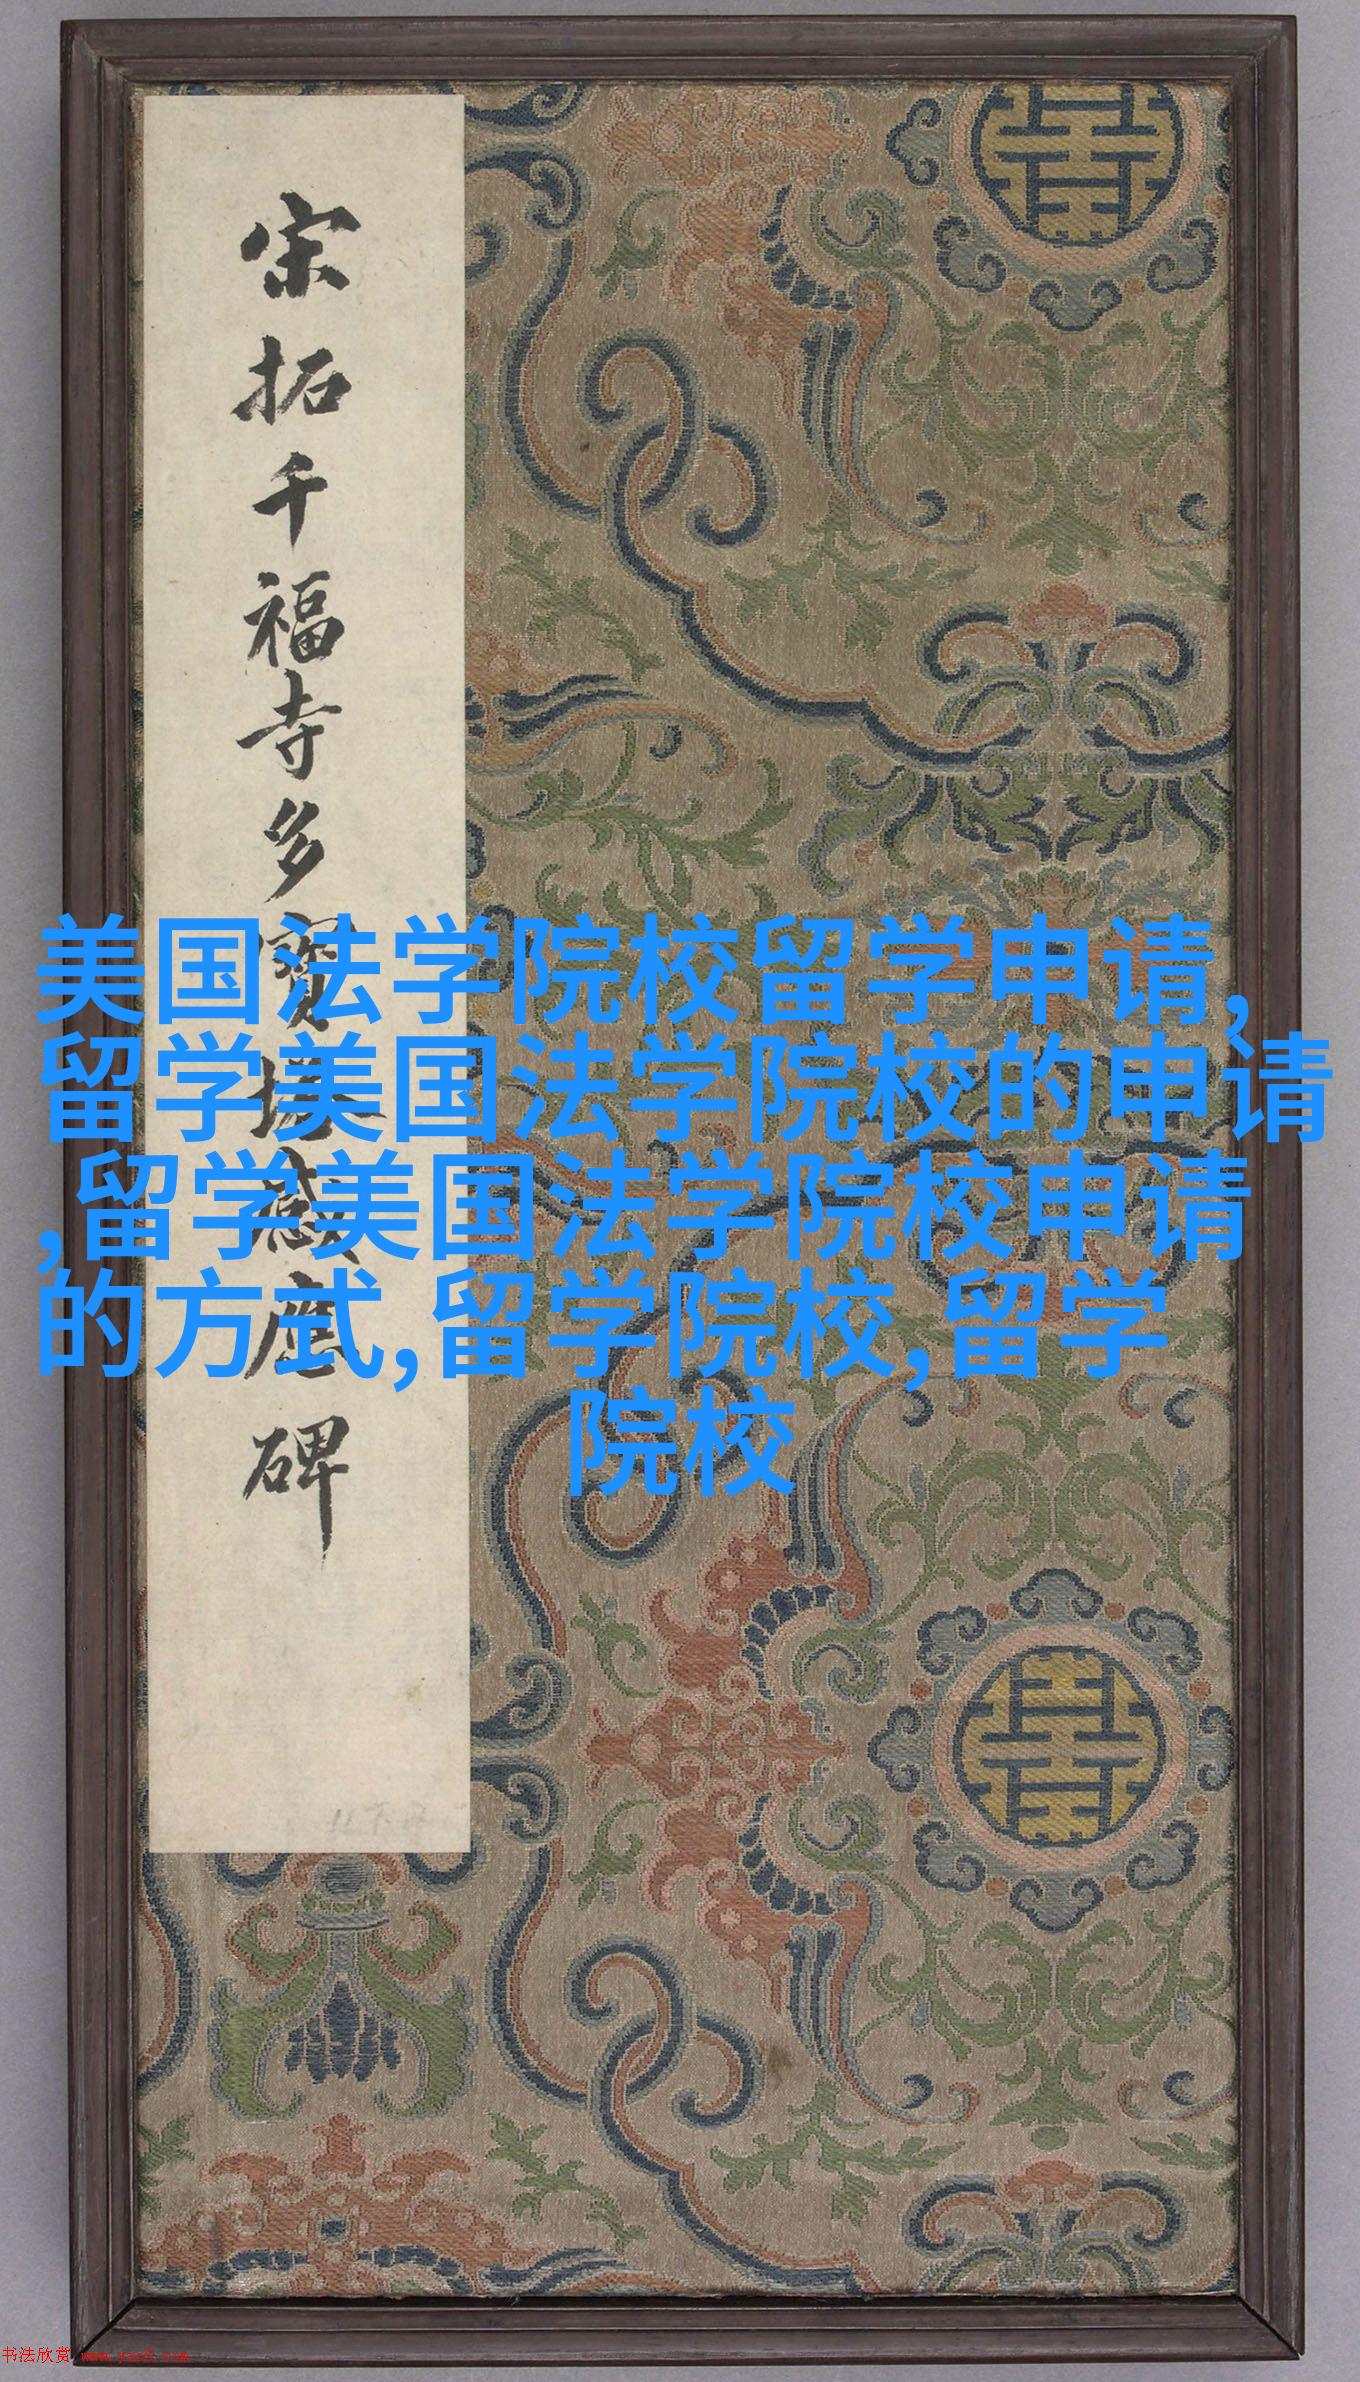 宋拓千福寺多寶塔感應碑
美国法学院校留学申请,
留学美国法学院校的申请
,留学美国法学院校申请
的方式,留学院校,留学
院校
书法欣赏 www.yac8.com